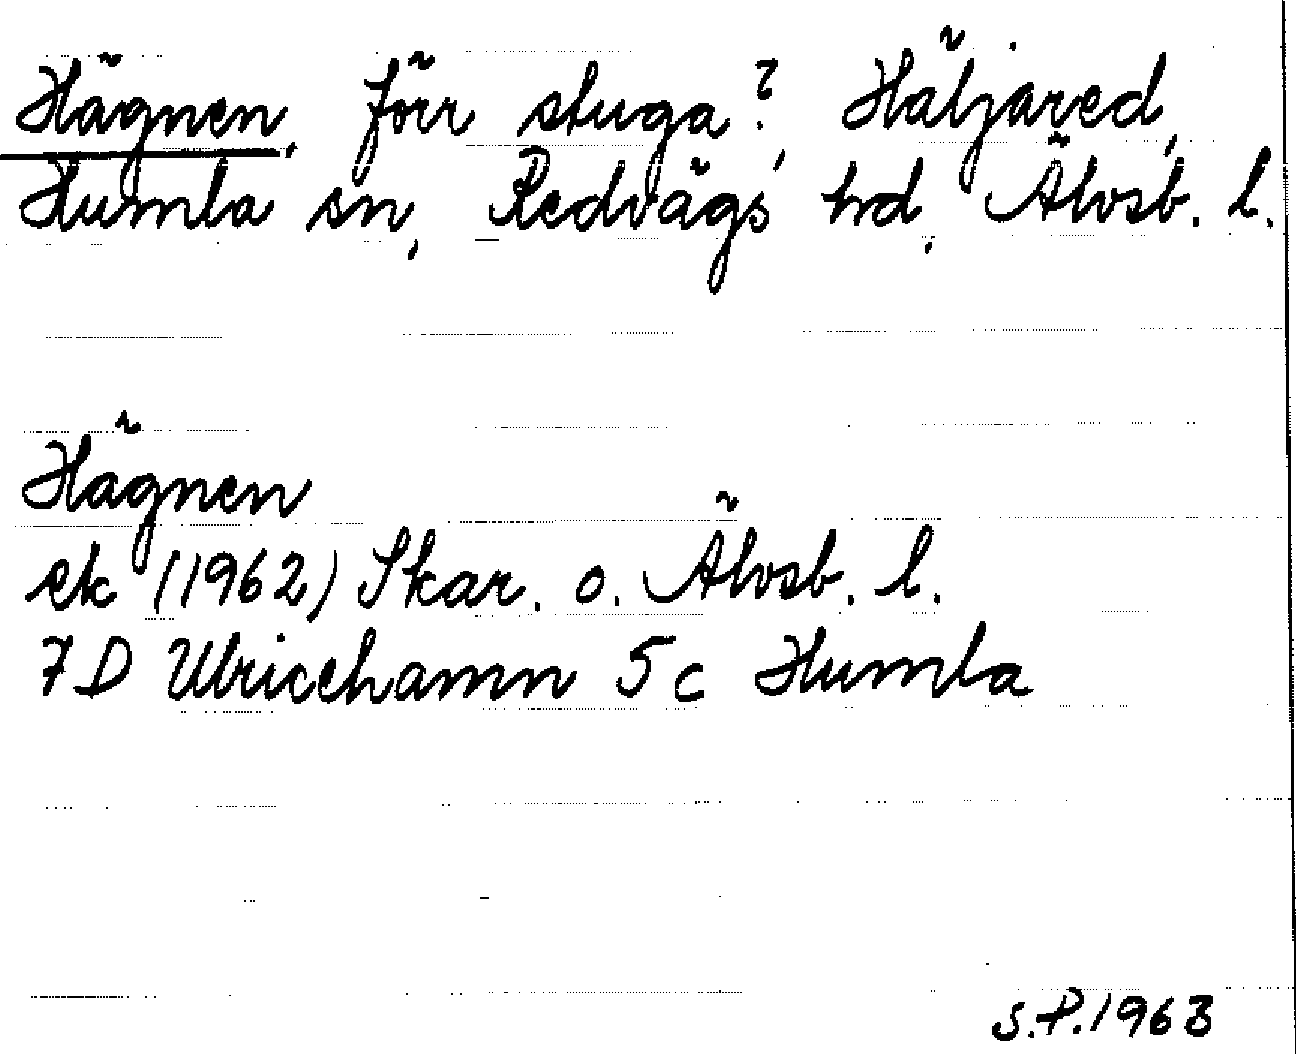 Hägnen, förr stuga?, Häljared,
Humla sn, Redvägs hd, Älvsb. l.
Hägnen
ek (1962) Skar. o. Älvsb. l.
7D Ulricehamn 5c Humla
S.P.1963